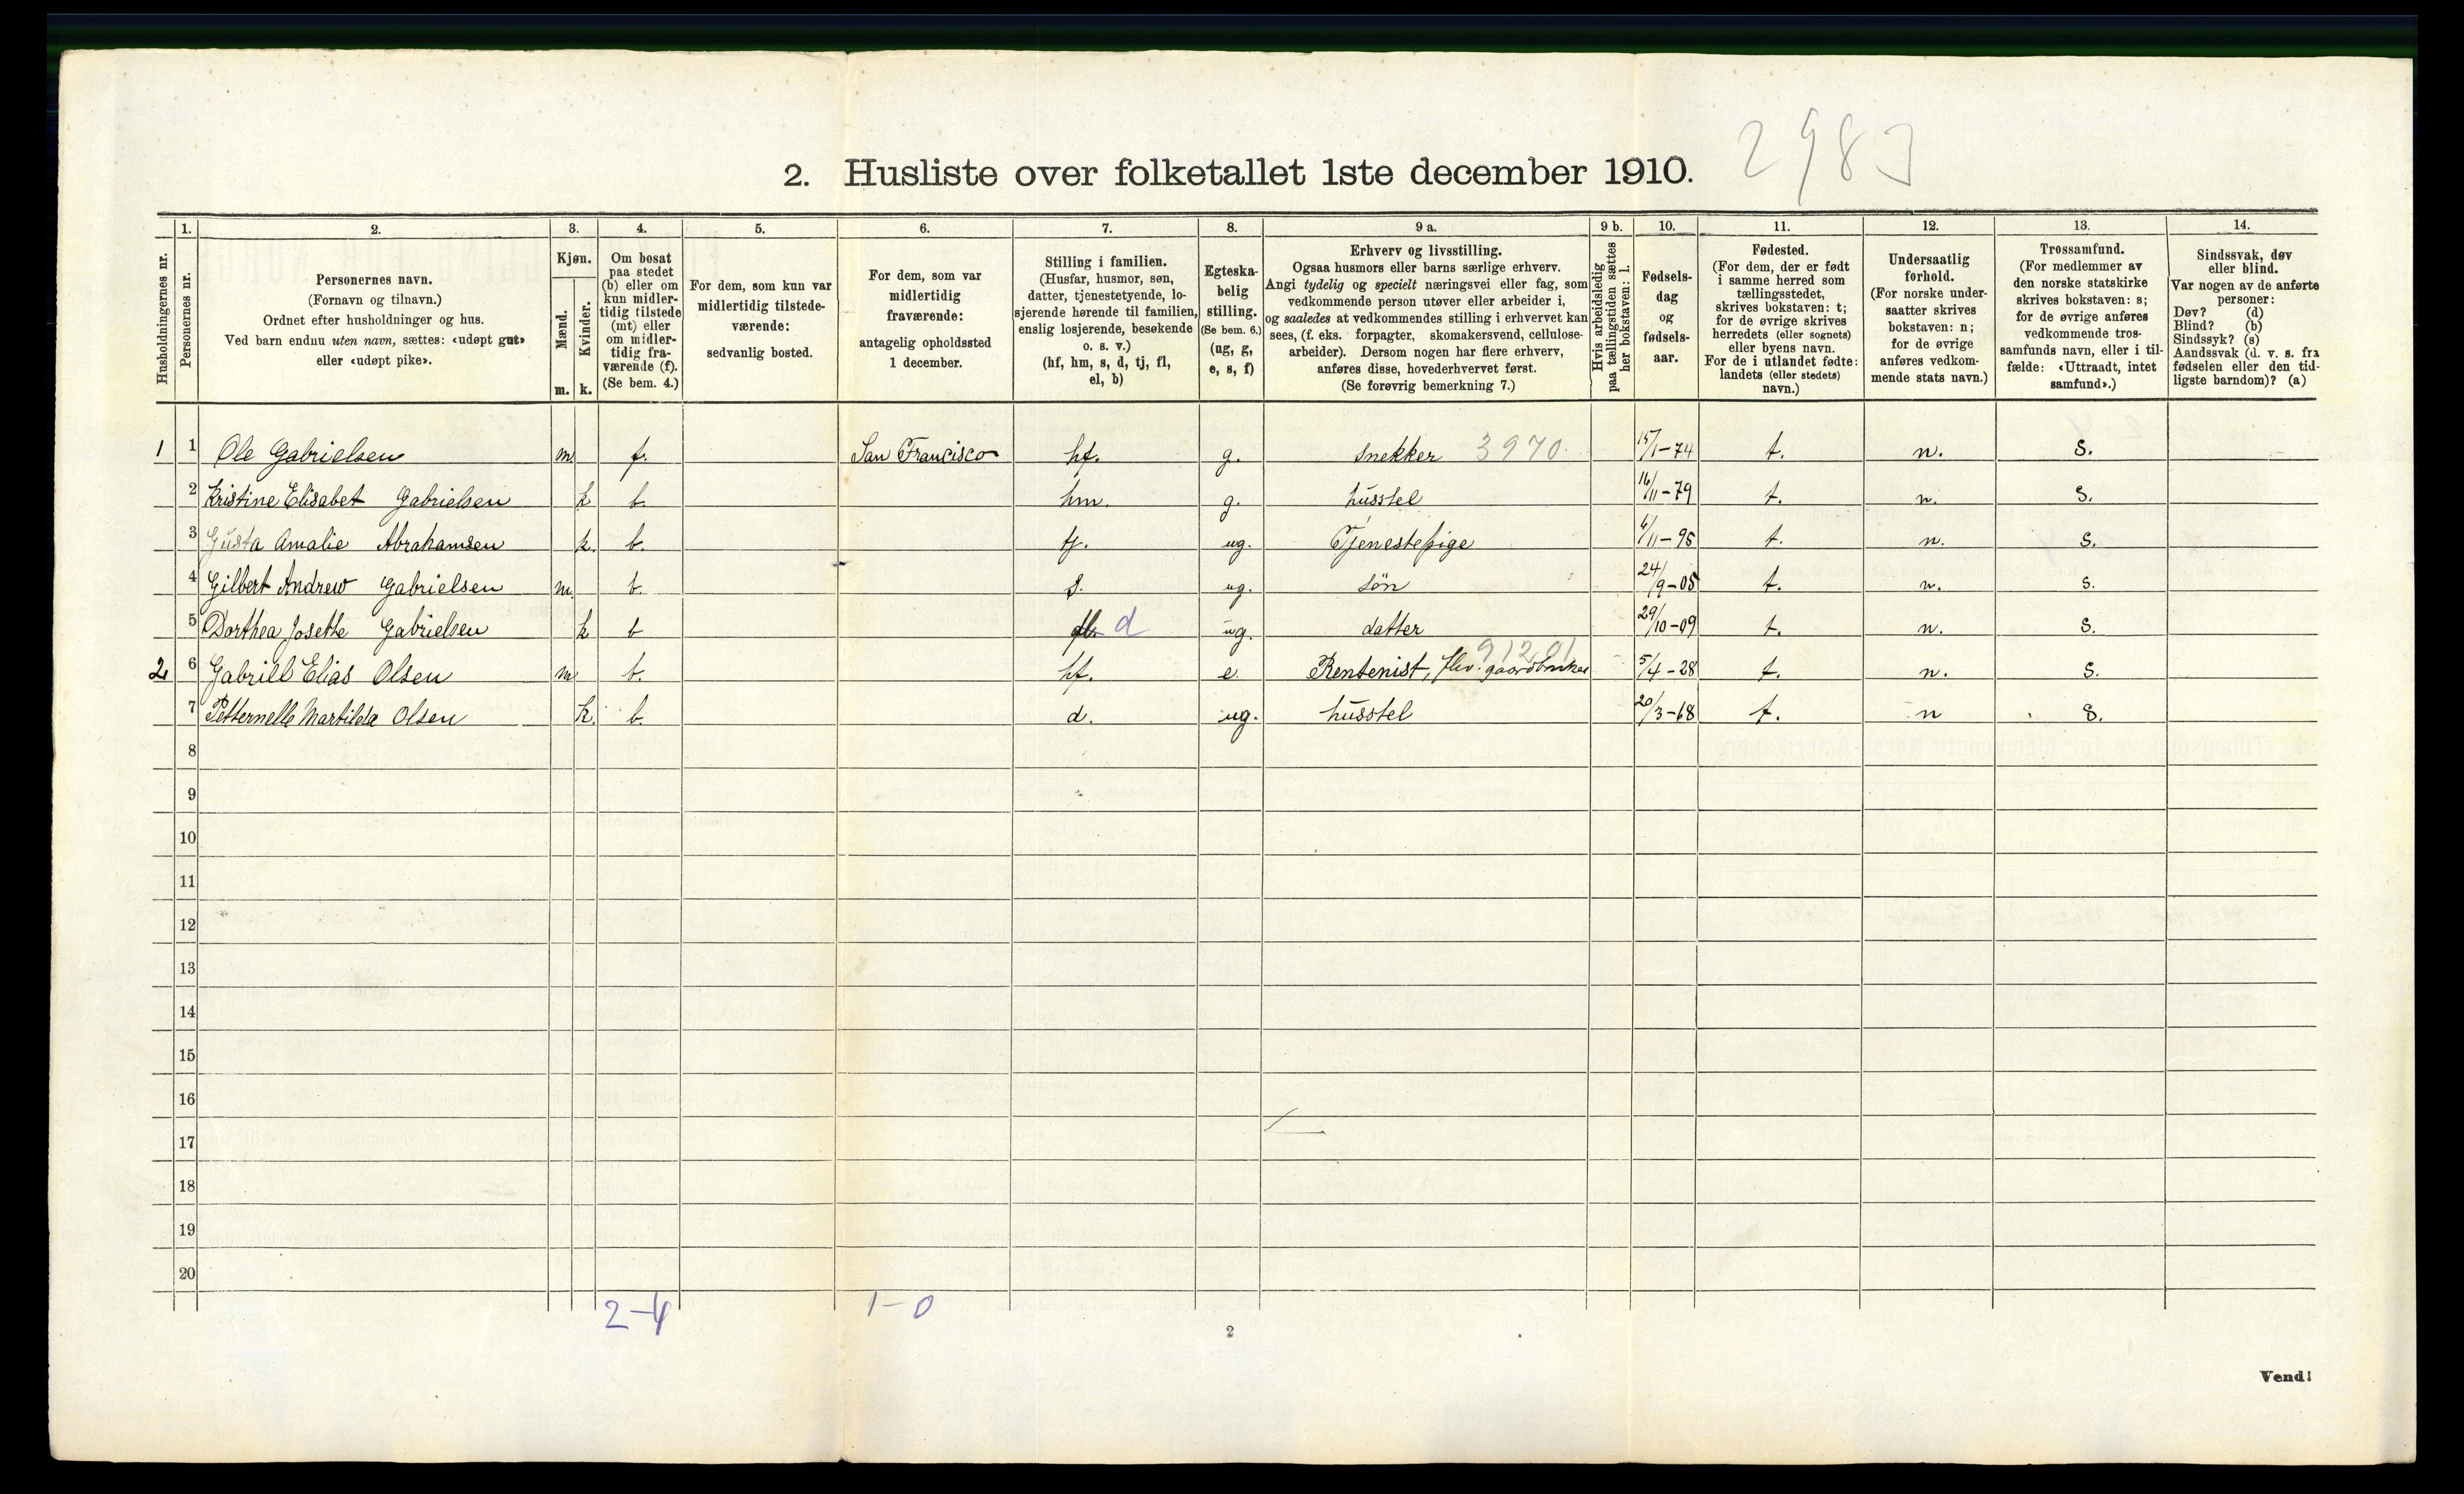 2983
2. Husliste over folketallet 1ste december 1910.
1. 2. 3. 4. 5. 6. 7. 8. 9 a. 9 b. 10. 11. 12. 13. 14.
Husholdningernes nr.
Personernes nr.
Personernes navn.
(Fornavn og tilnavn.)
Ordnet efter husholdninger og hus.
Ved barn endnu uten navn, sættes: «udøpt gut»
eller «udøpt pike».
Kjøn.
Mænd.
Kvinder.
m. k.
Om bosat
paa stedet
(b) eller om
kun midler-
tidig tilstede
(mt) eller
om midler-
tidig fra-
værende (f).
(Se bem. 4.)
For dem, som kun var
midlertidig tilstede-
værende:
sedvanlig bosted.
For dem, som var
midlertidig
fraværende:
antagelig opholdssted
1 december.
Stilling i familien.
(Husfar, husmor, søn,
datter, tjenestetyende, lo-
sjerende hørende til familien,
enslig losjerende, besøkende
o. s. v.)
(hf, hm, s, d, tj, fl,
el, b)
Egteska-
belig
stilling.
(Se bem. 6.)
(ug, g,
e, s, f)
Erhverv og livsstilling.
Ogsaa husmors eller barns særlige erhverv.
Angi tydelig og specielt næringsvei eller fag, som
vedkommende person utøver eller arbeider i,
og saaledes at vedkommendes stilling i erhvervet kan
sees, (f. eks. forpagter, skomakersvend, cellulose-
arbeider). Dersom nogen har flere erhverv,
anføres disse, hovederhvervet først.
(Se forøvrig bemerkning 7.)
Hvis arbeidsledig
paa tællingstiden sættes
her bokstaven: l.
Fødsels-
dag
og
fødsels-
aar.
Fødested.
(For dem, der er født
i samme herred som
tællingsstedet,
skrives bokstaven: t;
for de øvrige skrives
herredets (eller sognets)
eller byens navn.
For de i utlandet fødte:
landets (eller stedets)
navn.)
Undersaatlig
forhold.
(For norske under-
saatter skrives
bokstaven: n;
for de øvrige
anføres vedkom-
mende stats navn.)
Trossamfund.
(For medlemmer av
den norske statskirke
skrives bokstaven: s;
for de øvrige anføres
vedkommende tros-
samfunds navn, eller i til-
fælde: «Uttraadt, intet
samfund».)
Sindssvak, døv
eller blind.
Var nogen av de anførte
personer:
Døv? (d)
Blind? (b)
Sindssyk? (s)
Aandssvak (d. v. s. fra
fødselen eller den tid-
ligste barndom)? (a)
1 1 Ole Gabrielsen m. f. San Francisco hf. g. snekker 3970 15/1-74 t. n. s.
2 Kristine Elisabet Gabrielsen k b. hm. g. husstel 16/11-79 t. n. s.
3 Gusta Amalie Abrahamsen k. b. tj. ug. Tjenestepige 6/11-95 t. n. s.
4 Gilbert Andrew Gabrielsen m. b. s. ug. søn 24/9-05 t. n. s.
5 Dorthea Josette Gabrielsen k b d ug. datter 29/10-09 t. n. s.
91201
2 6 Gabriel Elias Olsen m b. hf. e. Rentenist, fhv. gaardbruker 5/4-28 t. n. s.
7 Petternelle Martilde Olsen k. b. d. ug. husstel 20/3-68 t. n s.
8
9
10
11
12
13
14
15
16
17
18
19
20
2-4 1-0
2
Vend!